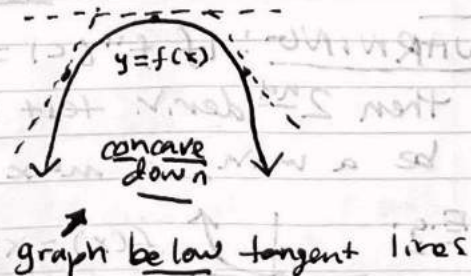 y=f(x)
concave
down
graph below tangent lines